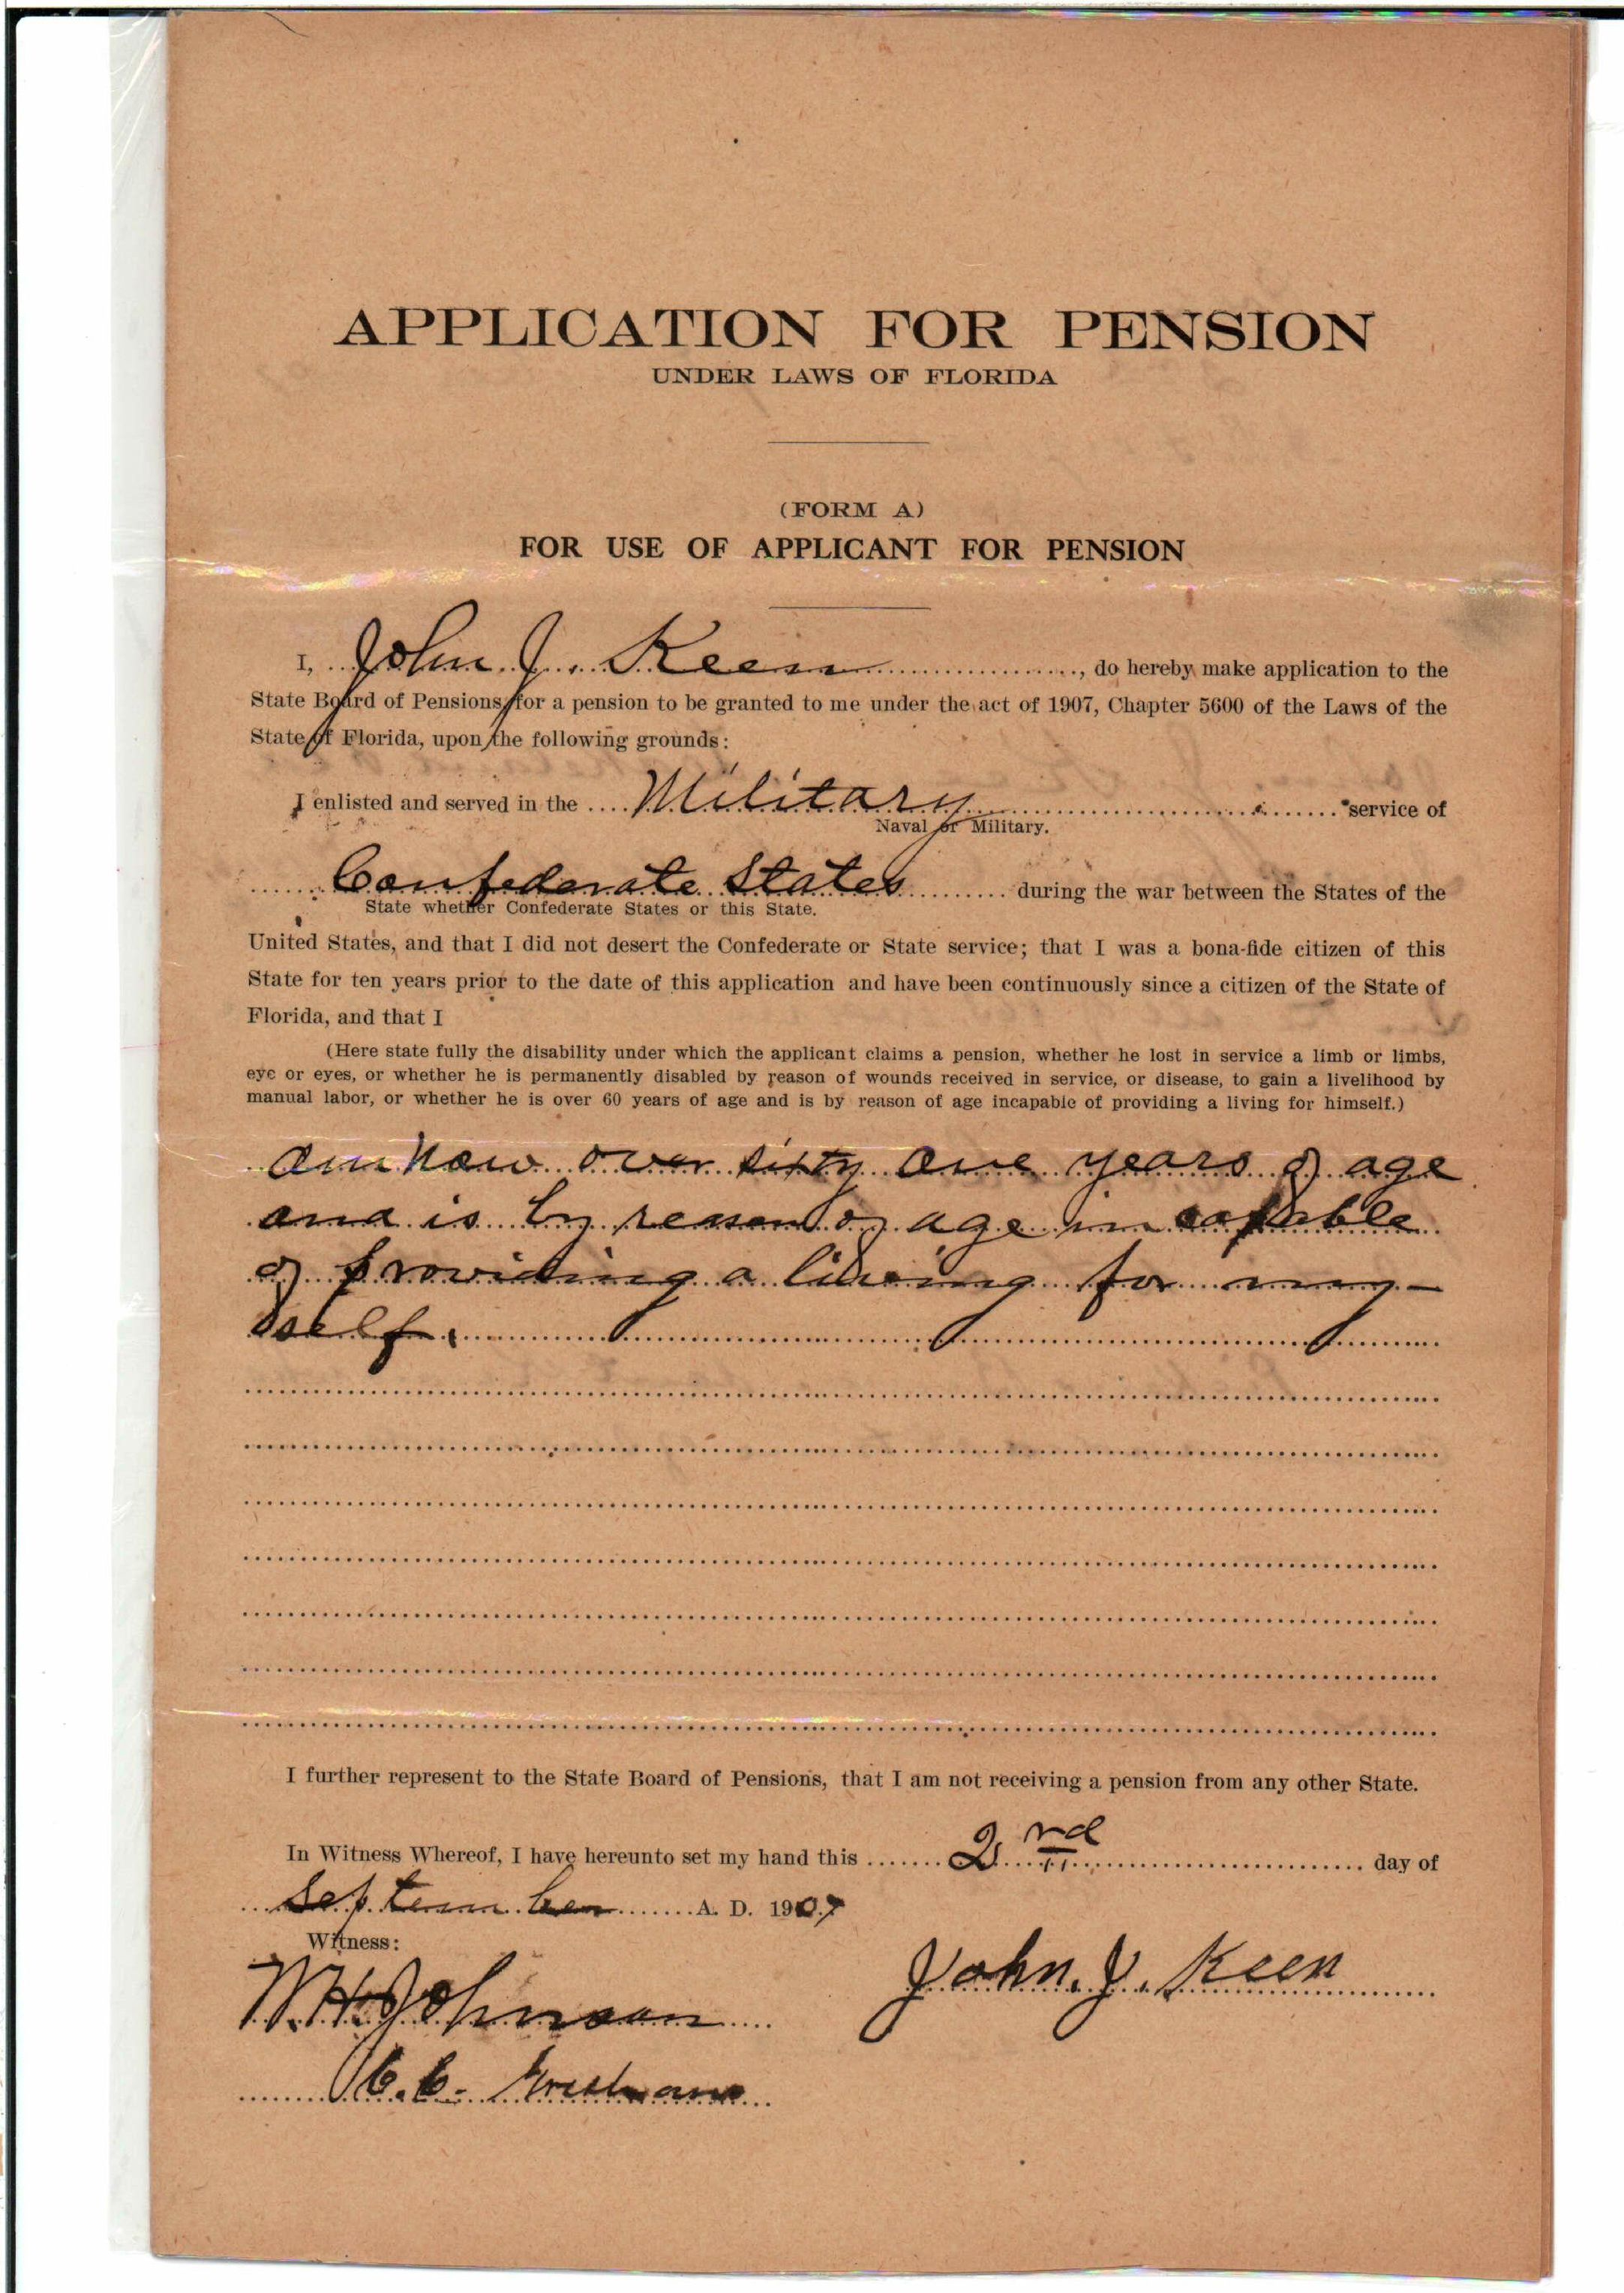 APPLICATION FOR PENSION
UNDER LAWS OF FLORIDA
(FORM A)
FOR USE OF APPLICANT FOR PENSION
I, John J. Keen, do hereby make application to the
State Board of Pensions for a pension to be granted to me under the act of 1907, Chapter 5600 of the Laws of the
State of Florida, upon the following grounds:
I enlisted and served in the Military service of
Naval or Military.
Confederate States during the war between the States of the
State whether Confederate States or this State.
United States, and that I did not desert the Confederate or State service; that I was a bona-fide citizen of this
State for ten years prior to the date of this application and have been continuously since a citizen of the State of
Florida, and that I
(Here state fully the disability under which the applicant claims a pension, whether he lost in service a limb or limbs,
eye or eyes, or whether he is permanently disabled by reason of wounds received in service, or disease, to gain a livelihood by
manual labor, or whether he is over 60 years of age and is by reason of age incapable of providing a living for himself.)
am now over sixty one years of age
and is by reason of age in capable
of providing a living for my-
self.
I further represent to the State Board of Pensions, that I am not receiving a pension from any other State.
In Witness Whereof, I have hereunto set my hand this 2nd day of
September A. D. 1907
Witness:
W. H. Johnson
John. J. Keen
C. C.